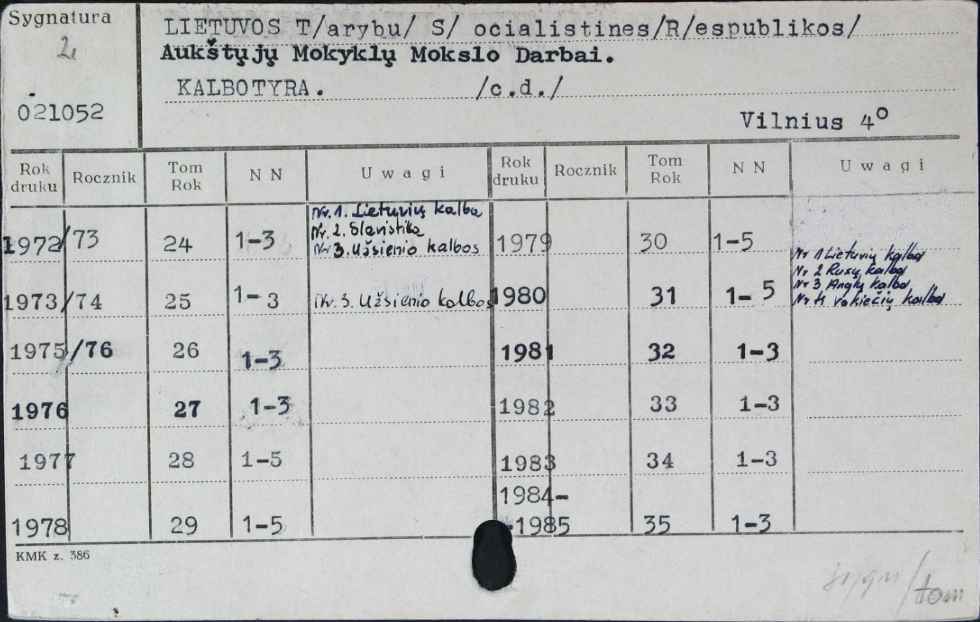 Sygnatura
2
021052
LIETUVOS T/arybu/ S/ ocialistines/R/espublikos/
Aukštųjų Mokyklų Mokslo Darbai.
KALBOTYRA. /c.d./
Vilnius 4o
Rok druku Rocznik Tom Rok N N Uwagi Rok druku Rocznik Tom Rok N N Uwagi
1972/73 24 1-3 Nr. 1. Lietuvių kalba
Nr. 2. Slavistika
Nr 3. Užsienio kalbos
1979 30 1-5
1973/74 25 1-3 Nr. 3. Užsienio kalbos
1980 31 1-5 Nr 1 Lietuvių kalba
Nr 2 Rusų kalba
Nr 3 Anglų kalba
Nr 4 Vokiečių kalba
1975/76 26 1-3 1981 32 1-3
1976 27 1-3 1982 33 1-3
1977 28 1-5 1983 34 1-3
1978 29 1-5 1984-
-1985 35 1-3
KMK z. 386
tom